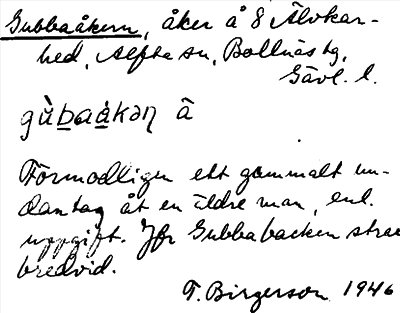 Gubbaåkern, åker å 8 Älvkar-
hed, Alfta sn, Bollnäs tg,
Gävl. l.
gùbaákən ā
Förmodligen ett gammalt un-
dantag åt en äldre man, enl.
uppgift. Jfr Gubbabacken strax
bredvid.
T. Birgerson 1946